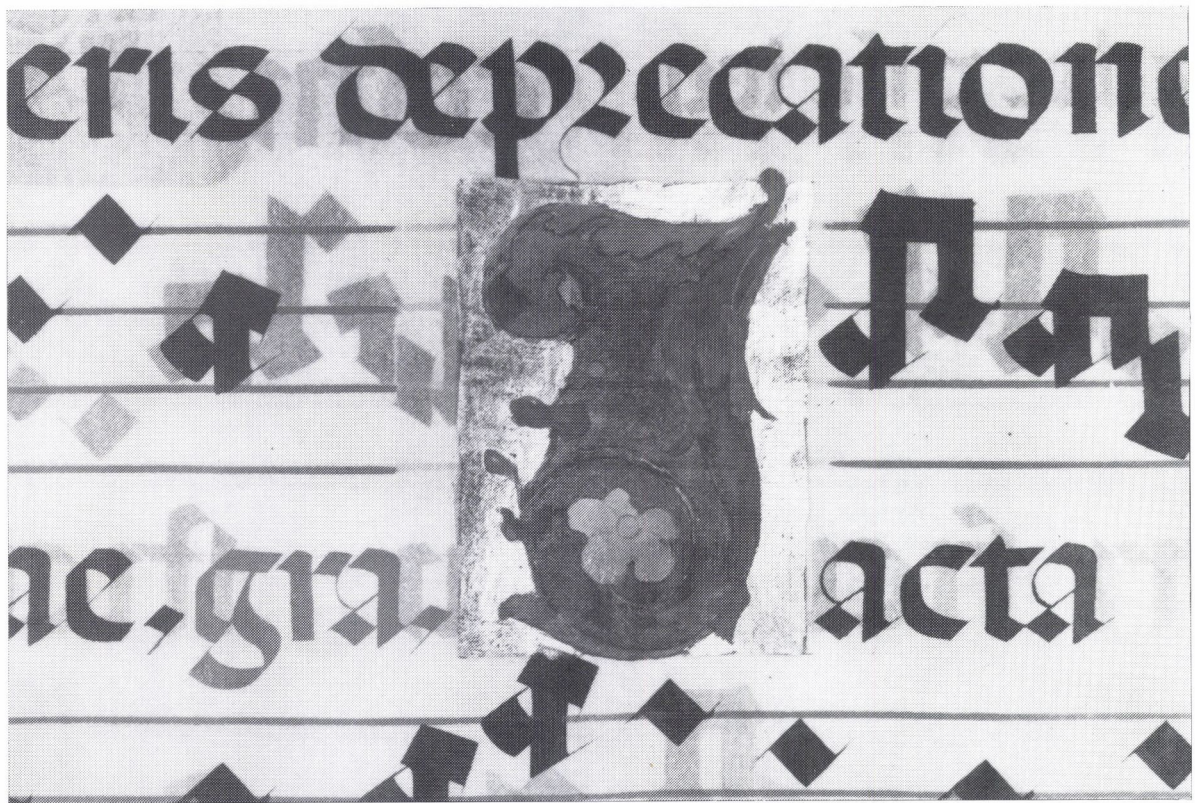 eris deprecatione
ne, gra. Jacta